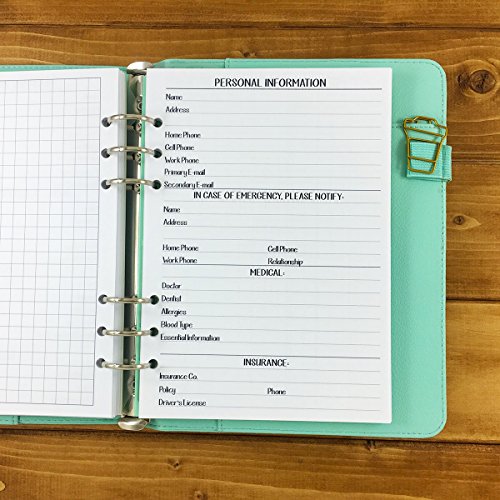 PERSONAL INFORMATION
Name
Address
Home Phone
Cell Phone
Work Phone
Primary E-mail
Secondary E-mail
IN CASE OF EMERGENCY, PLEASE NOTIFY:
Name
Address
Home Phone Cell Phone
Work Phone Relationship
MEDICAL:
Doctor
Dentist
Allergies
Blood Type
Essential Information
INSURANCE:
Insurance Co.
Policy Phone
Driver's License